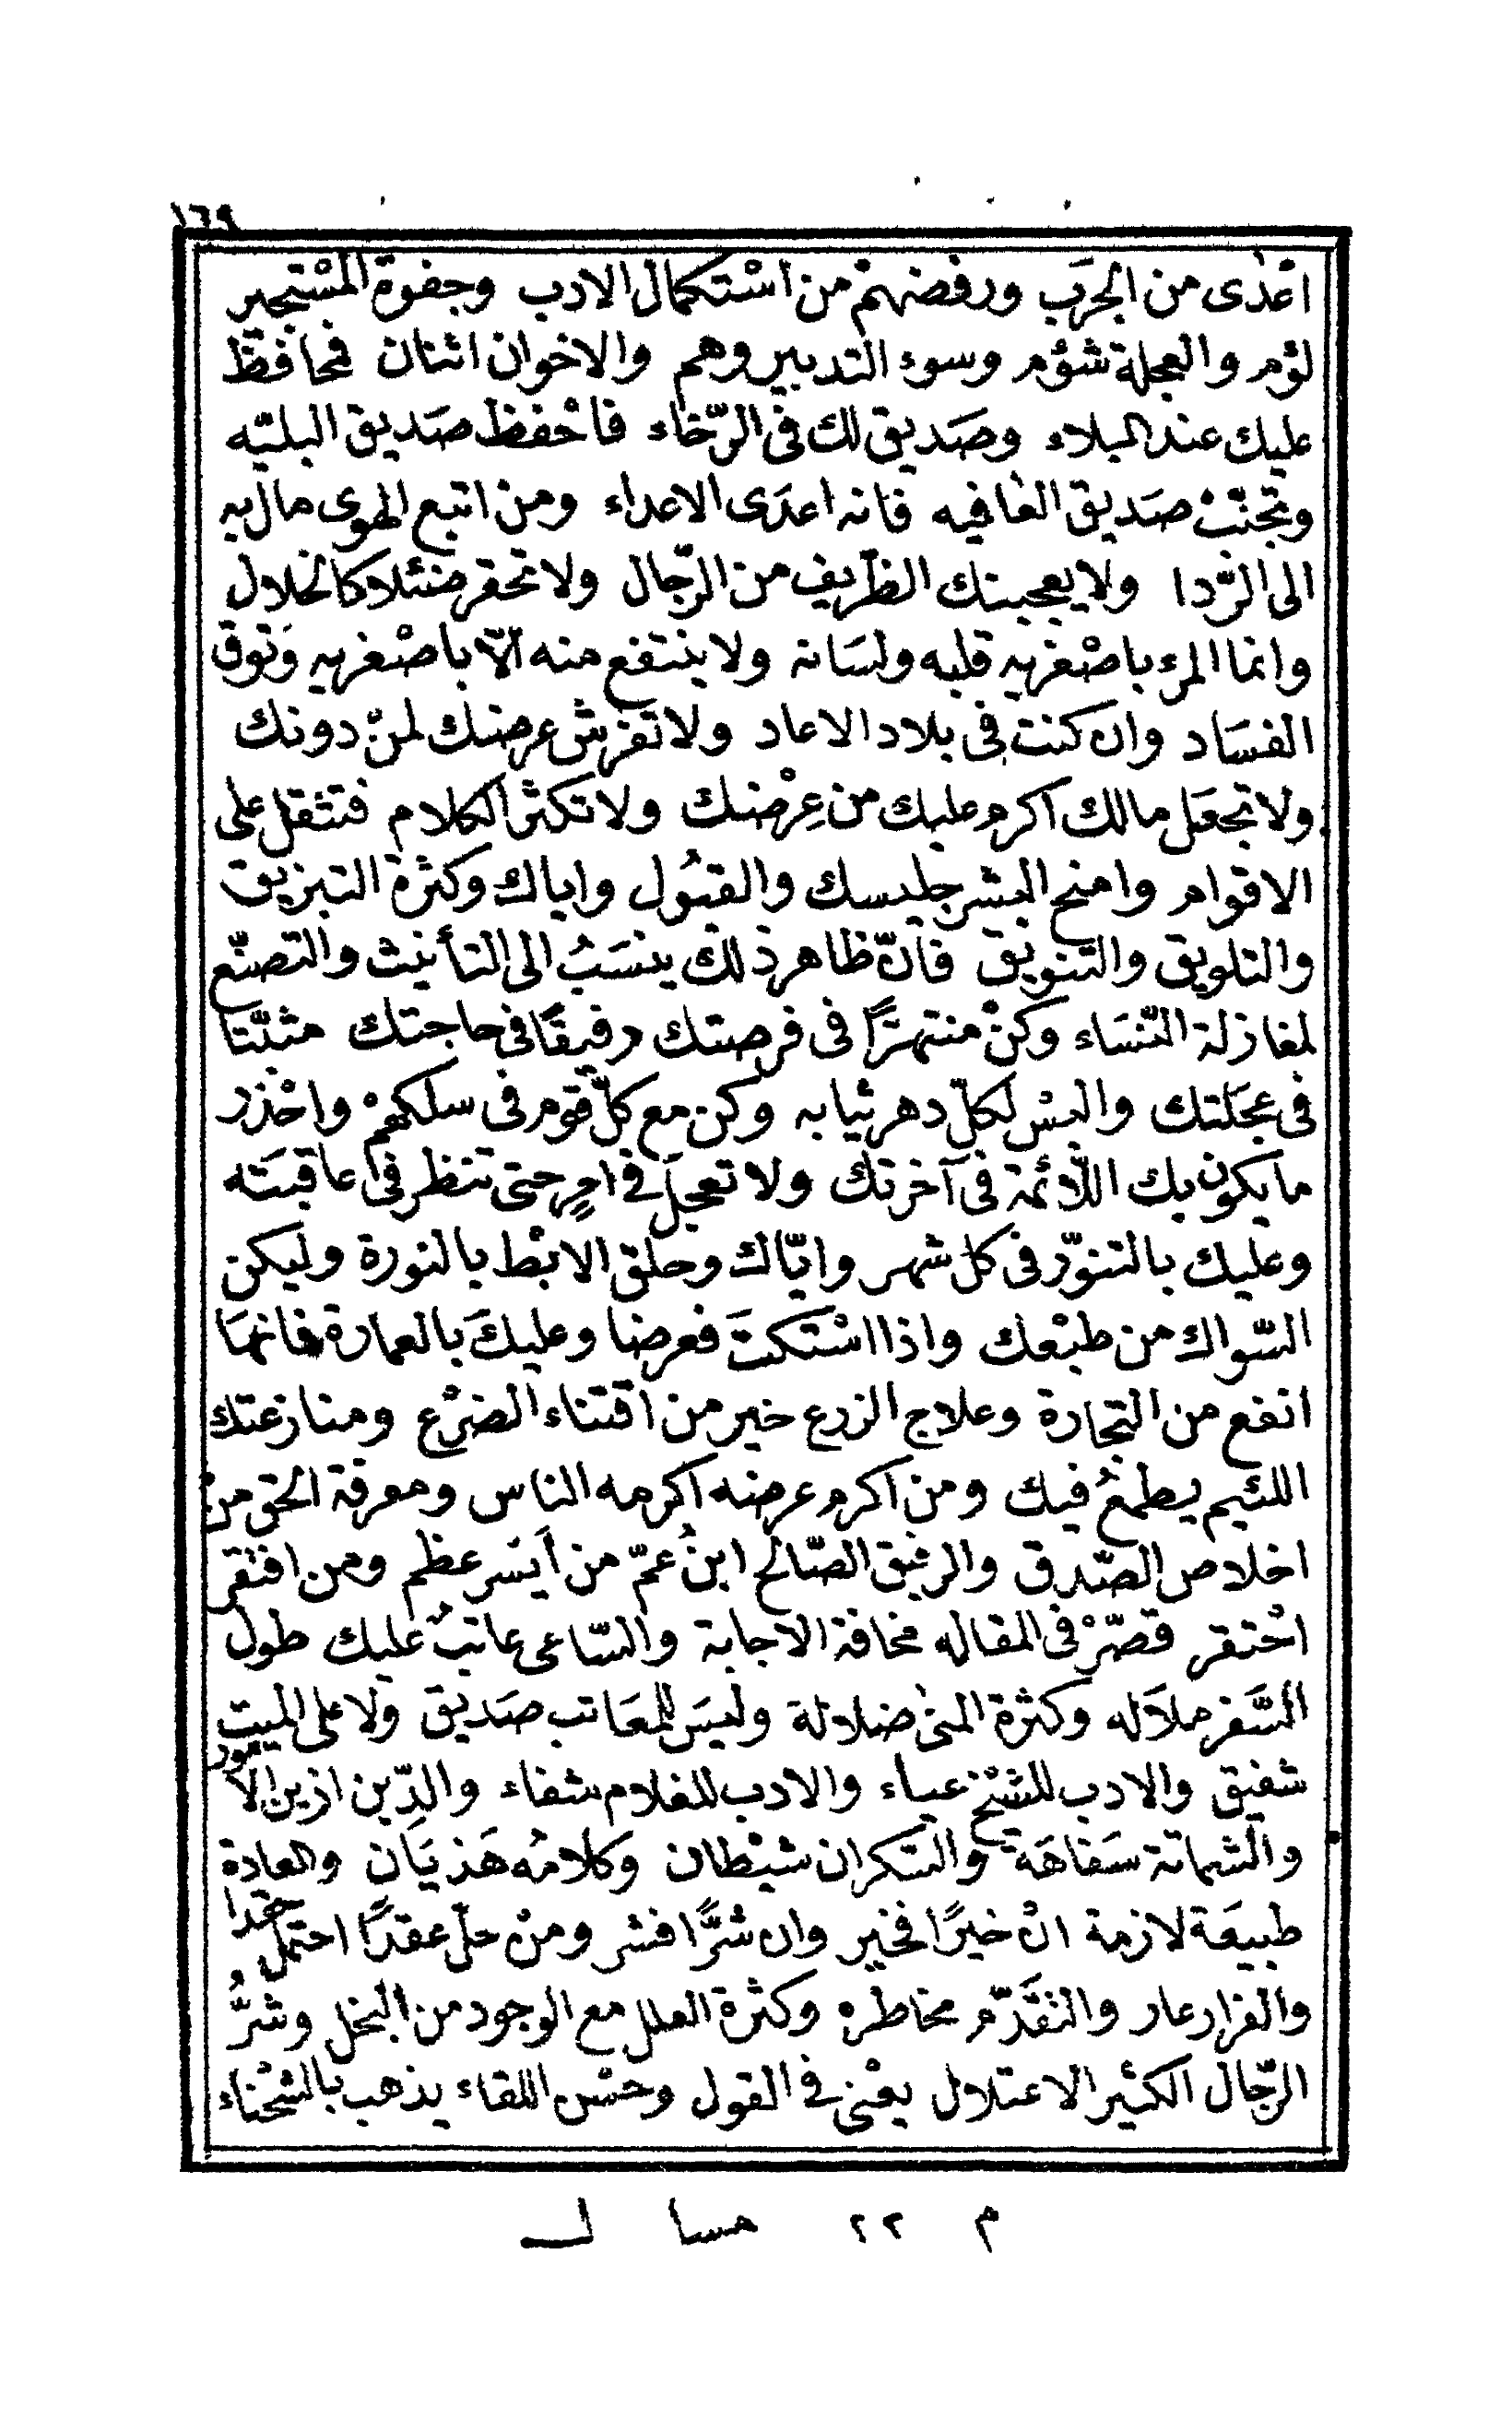 ١٦٩
اعْدٰى من الجَرَب ورفضهمْ من اسْتكمال الادب وجفوة المسْتجير
لؤم والعجلة شؤم وسوء التدبير وهم والاخوان اثنان فمحافظ
عليك عند البلاء وصَديق لك فى الرّخاء فاحْفظ صَديق البليّه
وتجنّبْ صَديق العافيه فانه اعدَى الاعداء ومن اتبع الهوى مال به
الى الرّدا ولا يعجبنك الظريف من الرّجال ولا تحقر ضئلا كالخلال
وانما المرء باصْغريه قلبه ولسَانه ولا ينتفع منه الّا باصْغريه وَتوق
الفسَاد وان كنت فى بلاد الاعاد ولا تفرش عرضك لمنْ دونك
ولا تجعَل مالك اكرم عليك من عِرْضك ولا تكثر الكلام فتثقل على
الاقوام وامنح البشر جليسك والقبُول واياك وكثرة التبزيق
والتلويق والتنويق فانّ ظاهر ذلك ينسَبُ الى التأنيث والتصنّع
لمغازلة النّسَاء وكنْ منتهزًا فى فرصتك رفيقًا فى حاجتك مثبّتا
فى عجَلتك والبسْ لكلّ دهر ثيابه وكن مع كلّ قوم فى سلكهمْ واحْذر
ما يكون بك اللّائمة فى آخرتك ولا تعجلَ فى امرٍ حتى تنظر فى عاقبَته
وعليك بالتنوّر فى كل شهر وايّاك وحلق الابْط بالنورة وليكن
السّواك من طبْعك واذا اسْتكتَ فعرضا وعليكَ بالعمارة فانهَا
انفع من التجارة وعلاج الزرع خير من اقتناء الضرْع ومنازعتك
اللئيم يطمعُ فيك ومن اكرم عرضه اكرمه الناس ومعرفة الحق منْ
اخلاص الصّدق والرفيق الصّالح ابنُ عمّ من اَيسَر عظم ومن افتقر
احْتقر قصّرْ فى المقاله مخافة الاجابة والسّاعى عاتبٌ عليك طول
السَّفر ملاَله وكثرة المنٰى ضلالة وليسَ للمعَاتب صَديق ولا على الميت
شفيق والادب للشيْخ عياء والادب للغلام شفاء والدِّين ازين الامور
والشماتة سَفاهَة والسّكران شيْطان وكلامُه هَذيَان والعادة
طبيعَة لازمة انْ خيرًا فخير وان شرًّا فشر ومنْ حلّ عقدًا احتمل حقدا
والفرار عار والتقَدّم مخاطره وكثرة العلل مع الوجود من البخل وشرُّ
الرّجال الكثير الاعتلال يعْنى فى القول وحسْن اللقاء يذهب بالشحْناء
م ٢٢ مسا ل